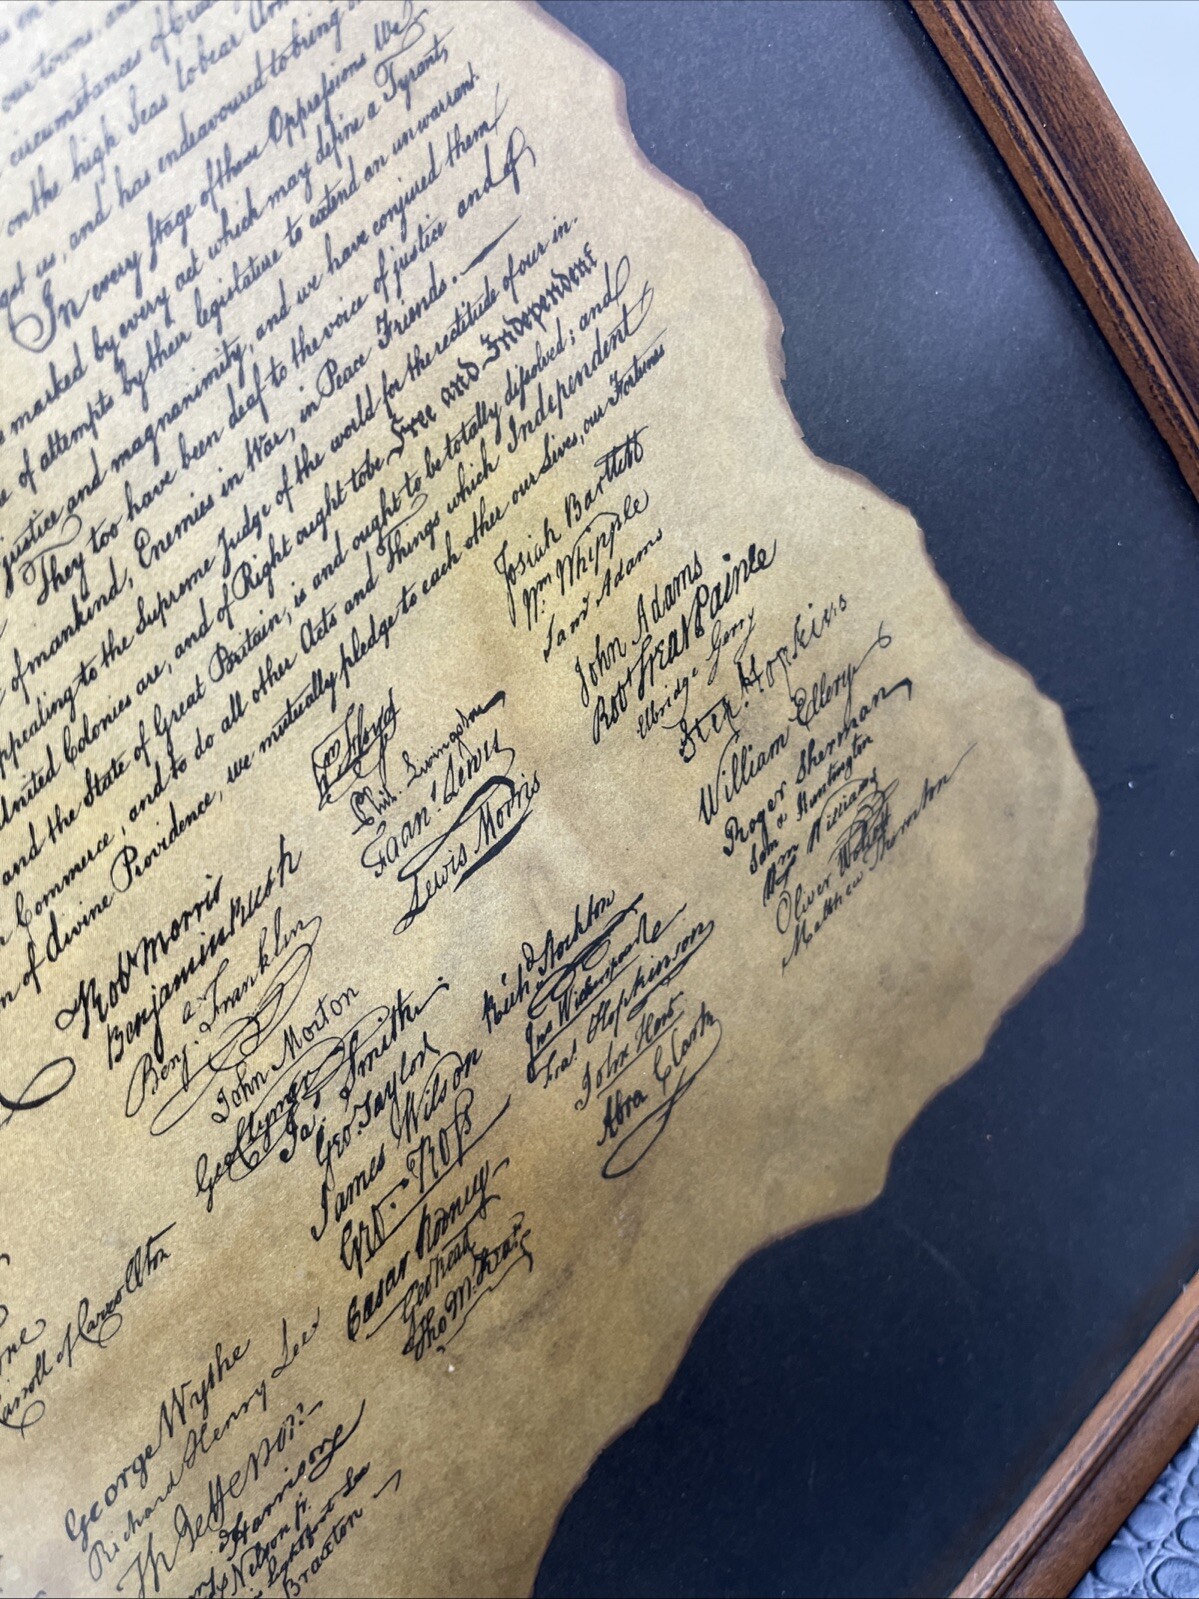 our towns, and
circumstances of
on the high Seas to bear Arm
us, and has endeavoured to bring
In every stage of these Oppressions We
marked by every act which may define a Tyrant,
of attempts by their legislature to extend an unwarrant
justice and magnanimity, and we have conjured them
They too have been deaf to the voice of justice and of
of mankind, Enemies in War, in Peace Friends.
appealing to the Supreme Judge of the world for the rectitude of our in.
United Colonies are, and of Right ought to be Free and Independent
and the State of Great Britain, is and ought to be totally dissolved; and
Commerce, and to do all other Acts and Things which Independent
of divine Providence, we mutually pledge to each other our Lives, our Fortunes
Josiah Bartlett
Wm. Whipple
Sam'l Adams
John Adams
Robt Treat Paine
Elbridge Gerry
Step. Hopkins
William Ellery
Roger Sherman
Sam'l Huntington
Wm Williams
Oliver Wolcott
Matthew Thornton
Wm Floyd
Phil. Livingston
Fran'. Lewis
Lewis Morris
Rich'd Stockton
Jno Witherspoon
Fras. Hopkinson
John Hart
Abra Clark
Robt Morris
Benjamin Rush
Benj. Franklin
John Morton
Geo Clymer
Jas. Smith
Geo. Taylor
James Wilson
Geo. Ross
Caesar Rodney
Geo Read
Tho M:Kean
Carroll of Carrollton
George Wythe
Richard Henry Lee
Th Jefferson
Harrison
Nelson jr.
Lightfoot Lee
Braxton